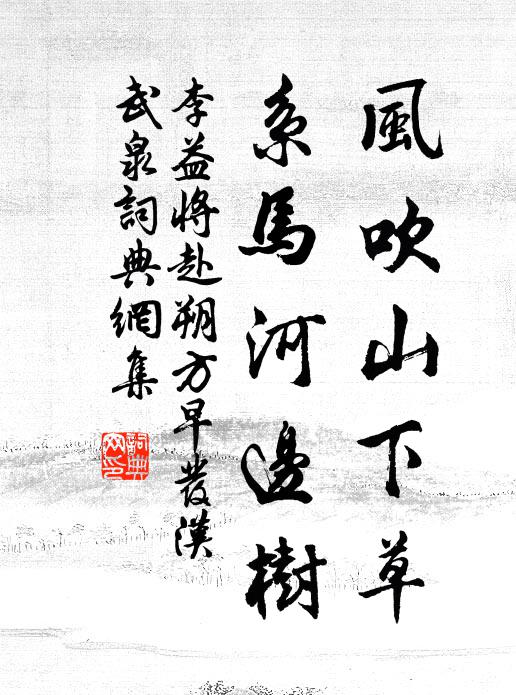 風吹山下草
系馬河邊樹
李益將赴朔方早發漢
武泉詞典網集
詞典
网印